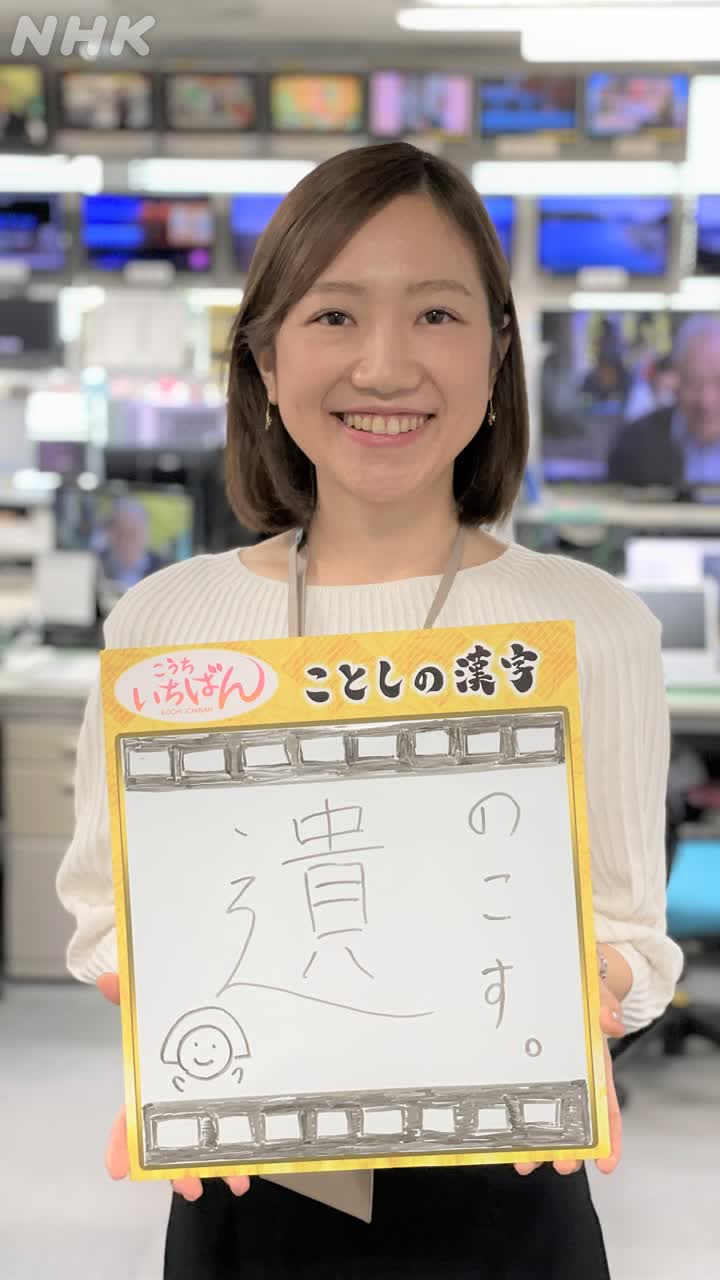 NHK
こうち
いちばん
KOCHI ICHIBAN
ことしの漢字
のこす。
遺